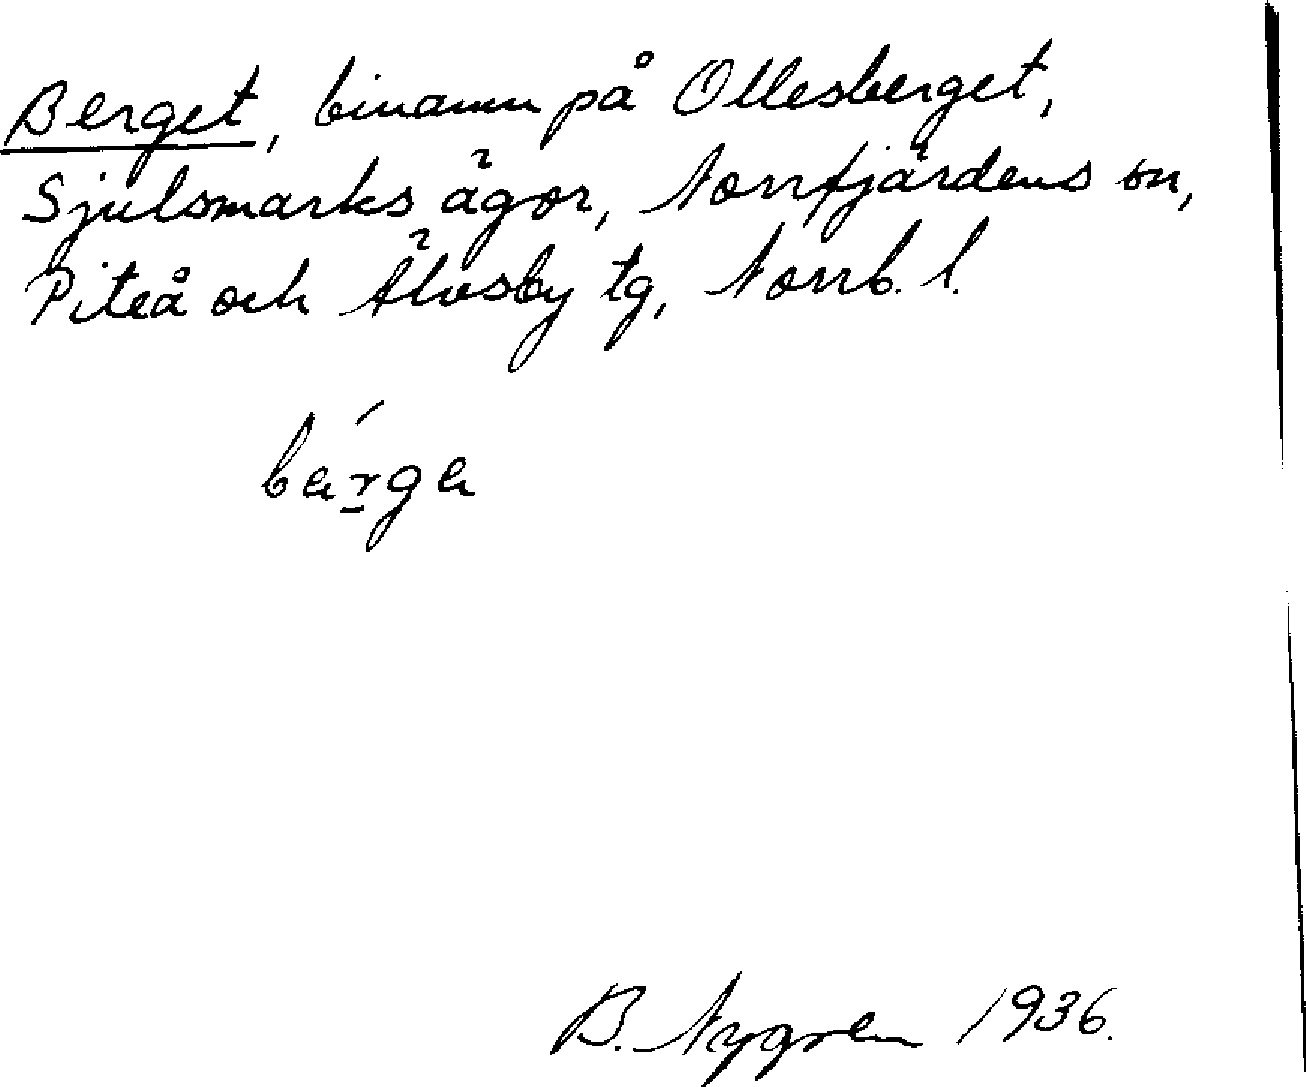 Berget, binamn på Ollesberget,
Sjulsmarks ägor, Norrfjärdens sn,
Piteå och Älvsby tg, Norrb. l.
bærgæ
B. Nygren 1936.